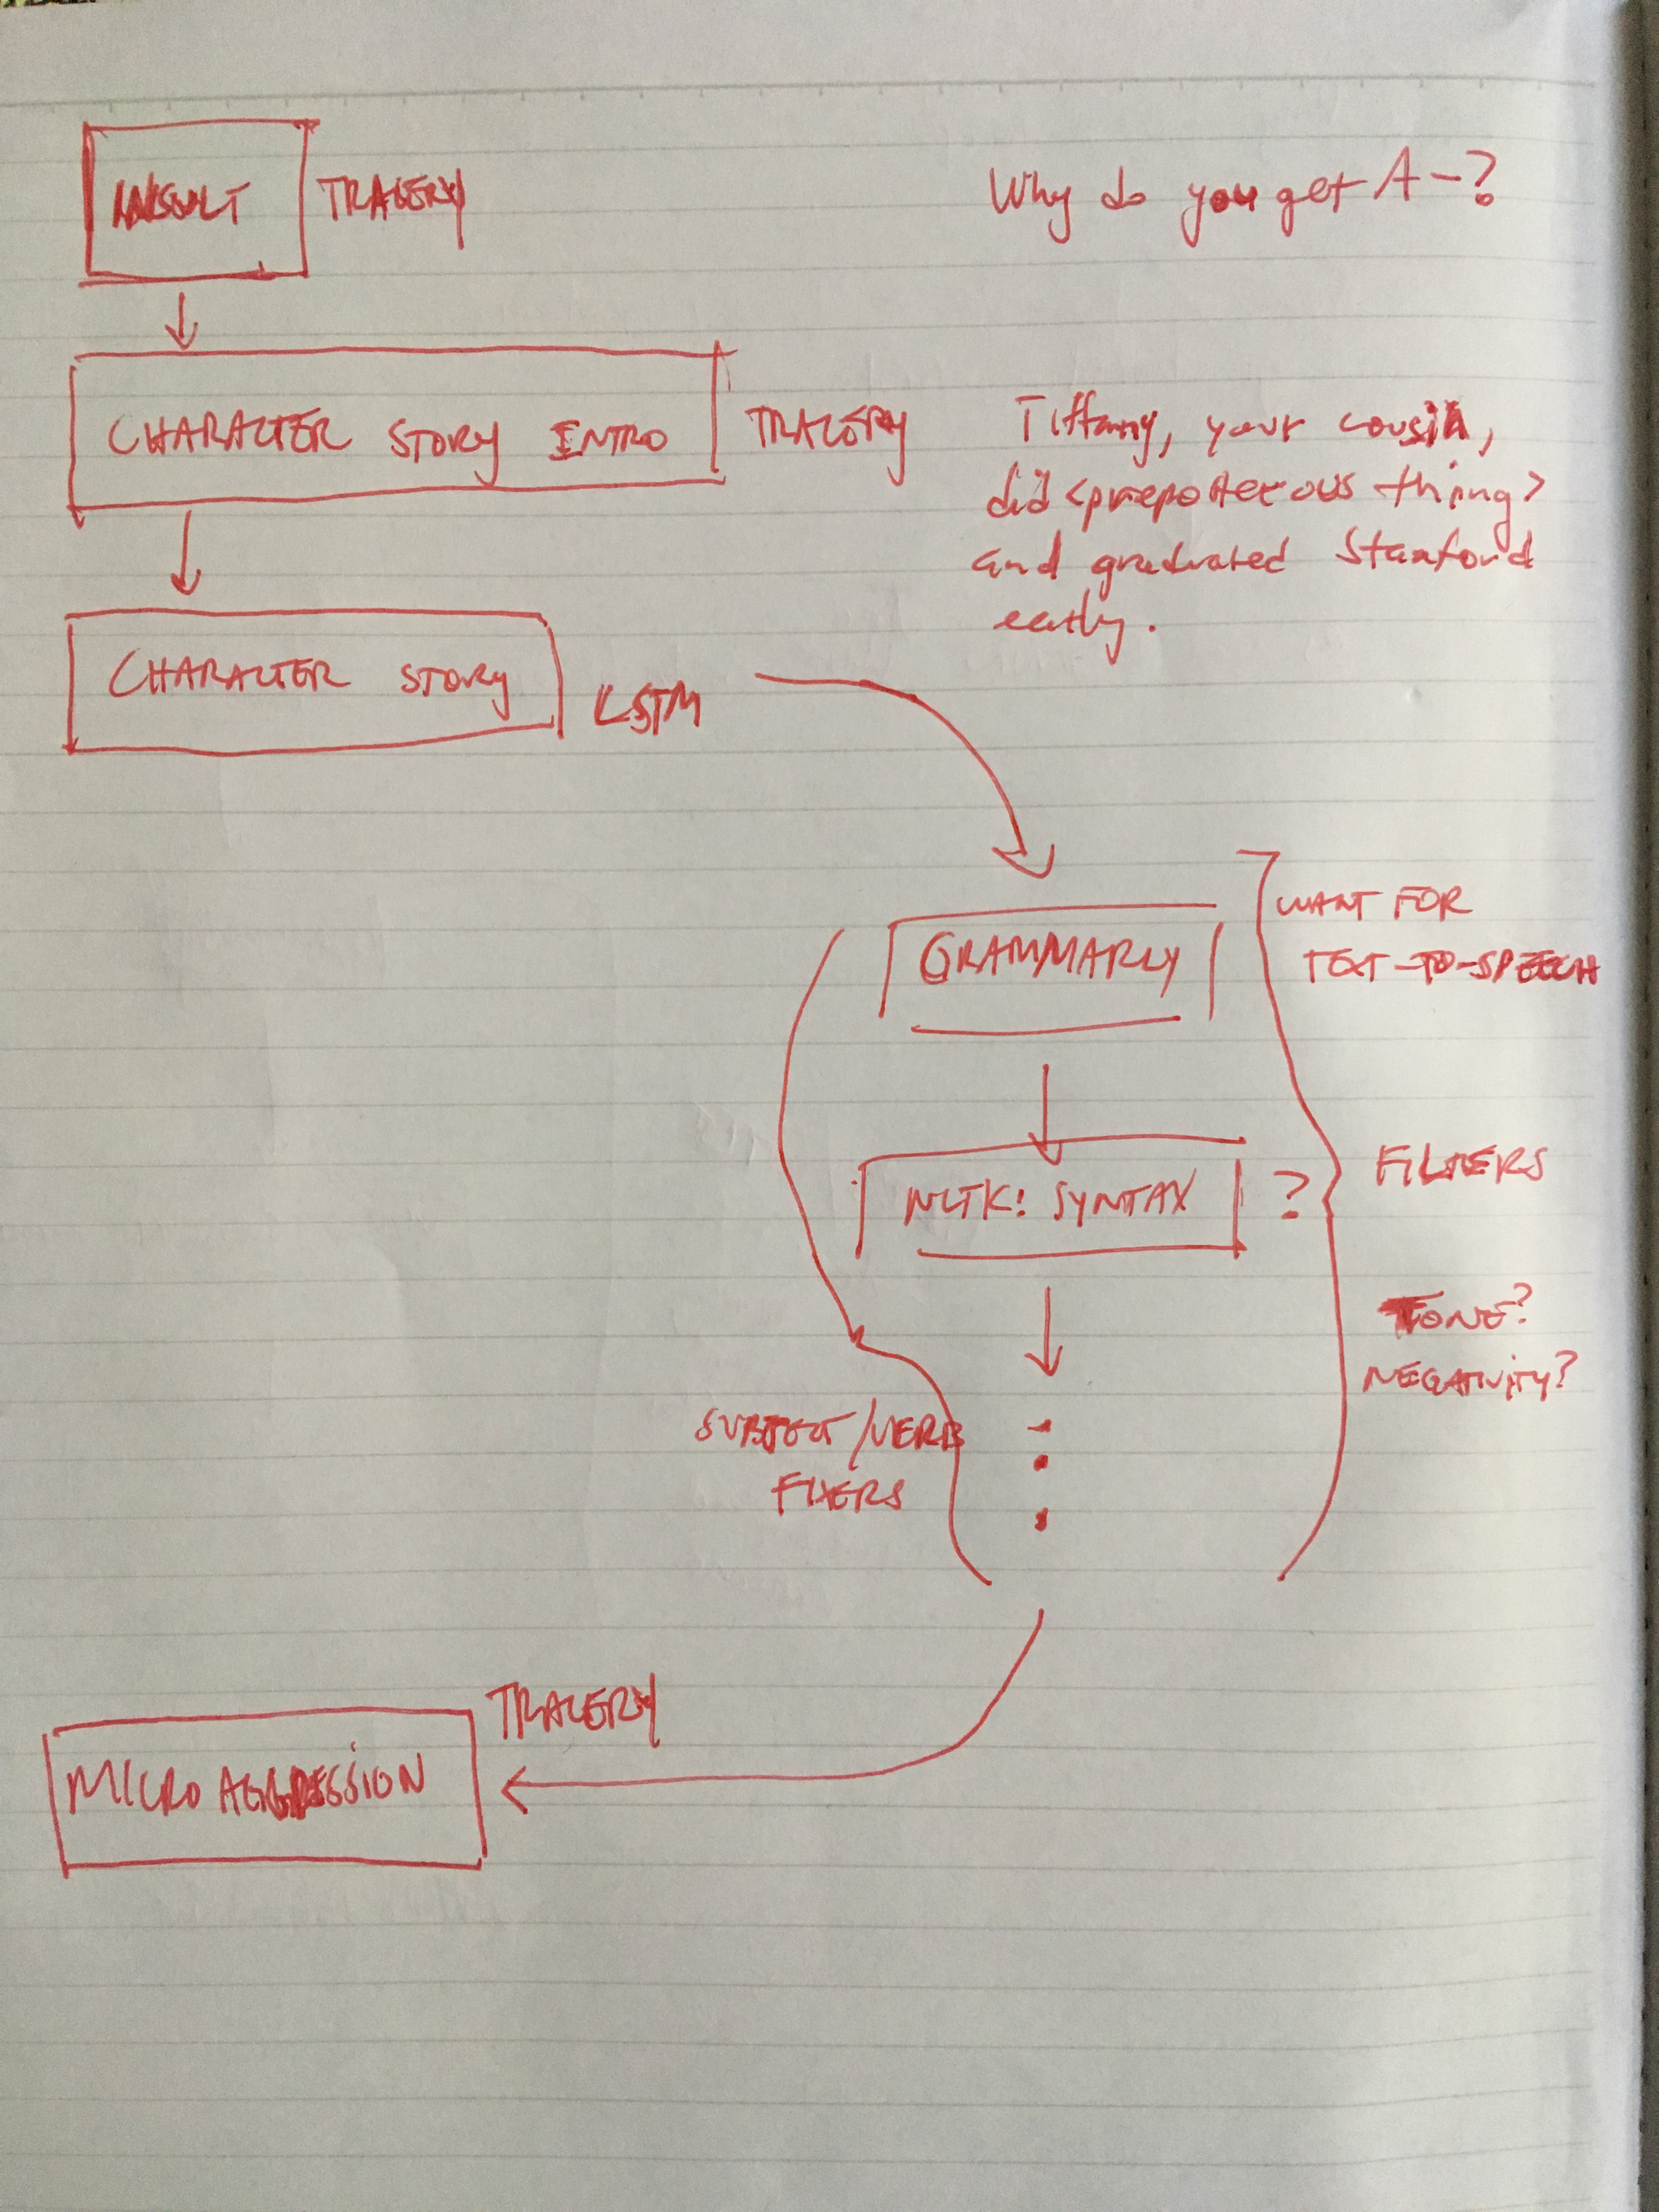 INSULT TRACERY
Why do you get A-?
CHARACTER STORY INTRO TRACERY
Tiffany, your cousin,
did <preposterous thing>
and graduated Stanford
early.
CHARACTER STORY LSTM
GRAMMARLY
WANT FOR
TEXT-TO-SPEECH
NLTK! SYNTAX ?
FILTERS
TONE?
NEGATIVITY?
SUBJECT/VERB
FIXERS
TRACERY
MICROAGGRESSION